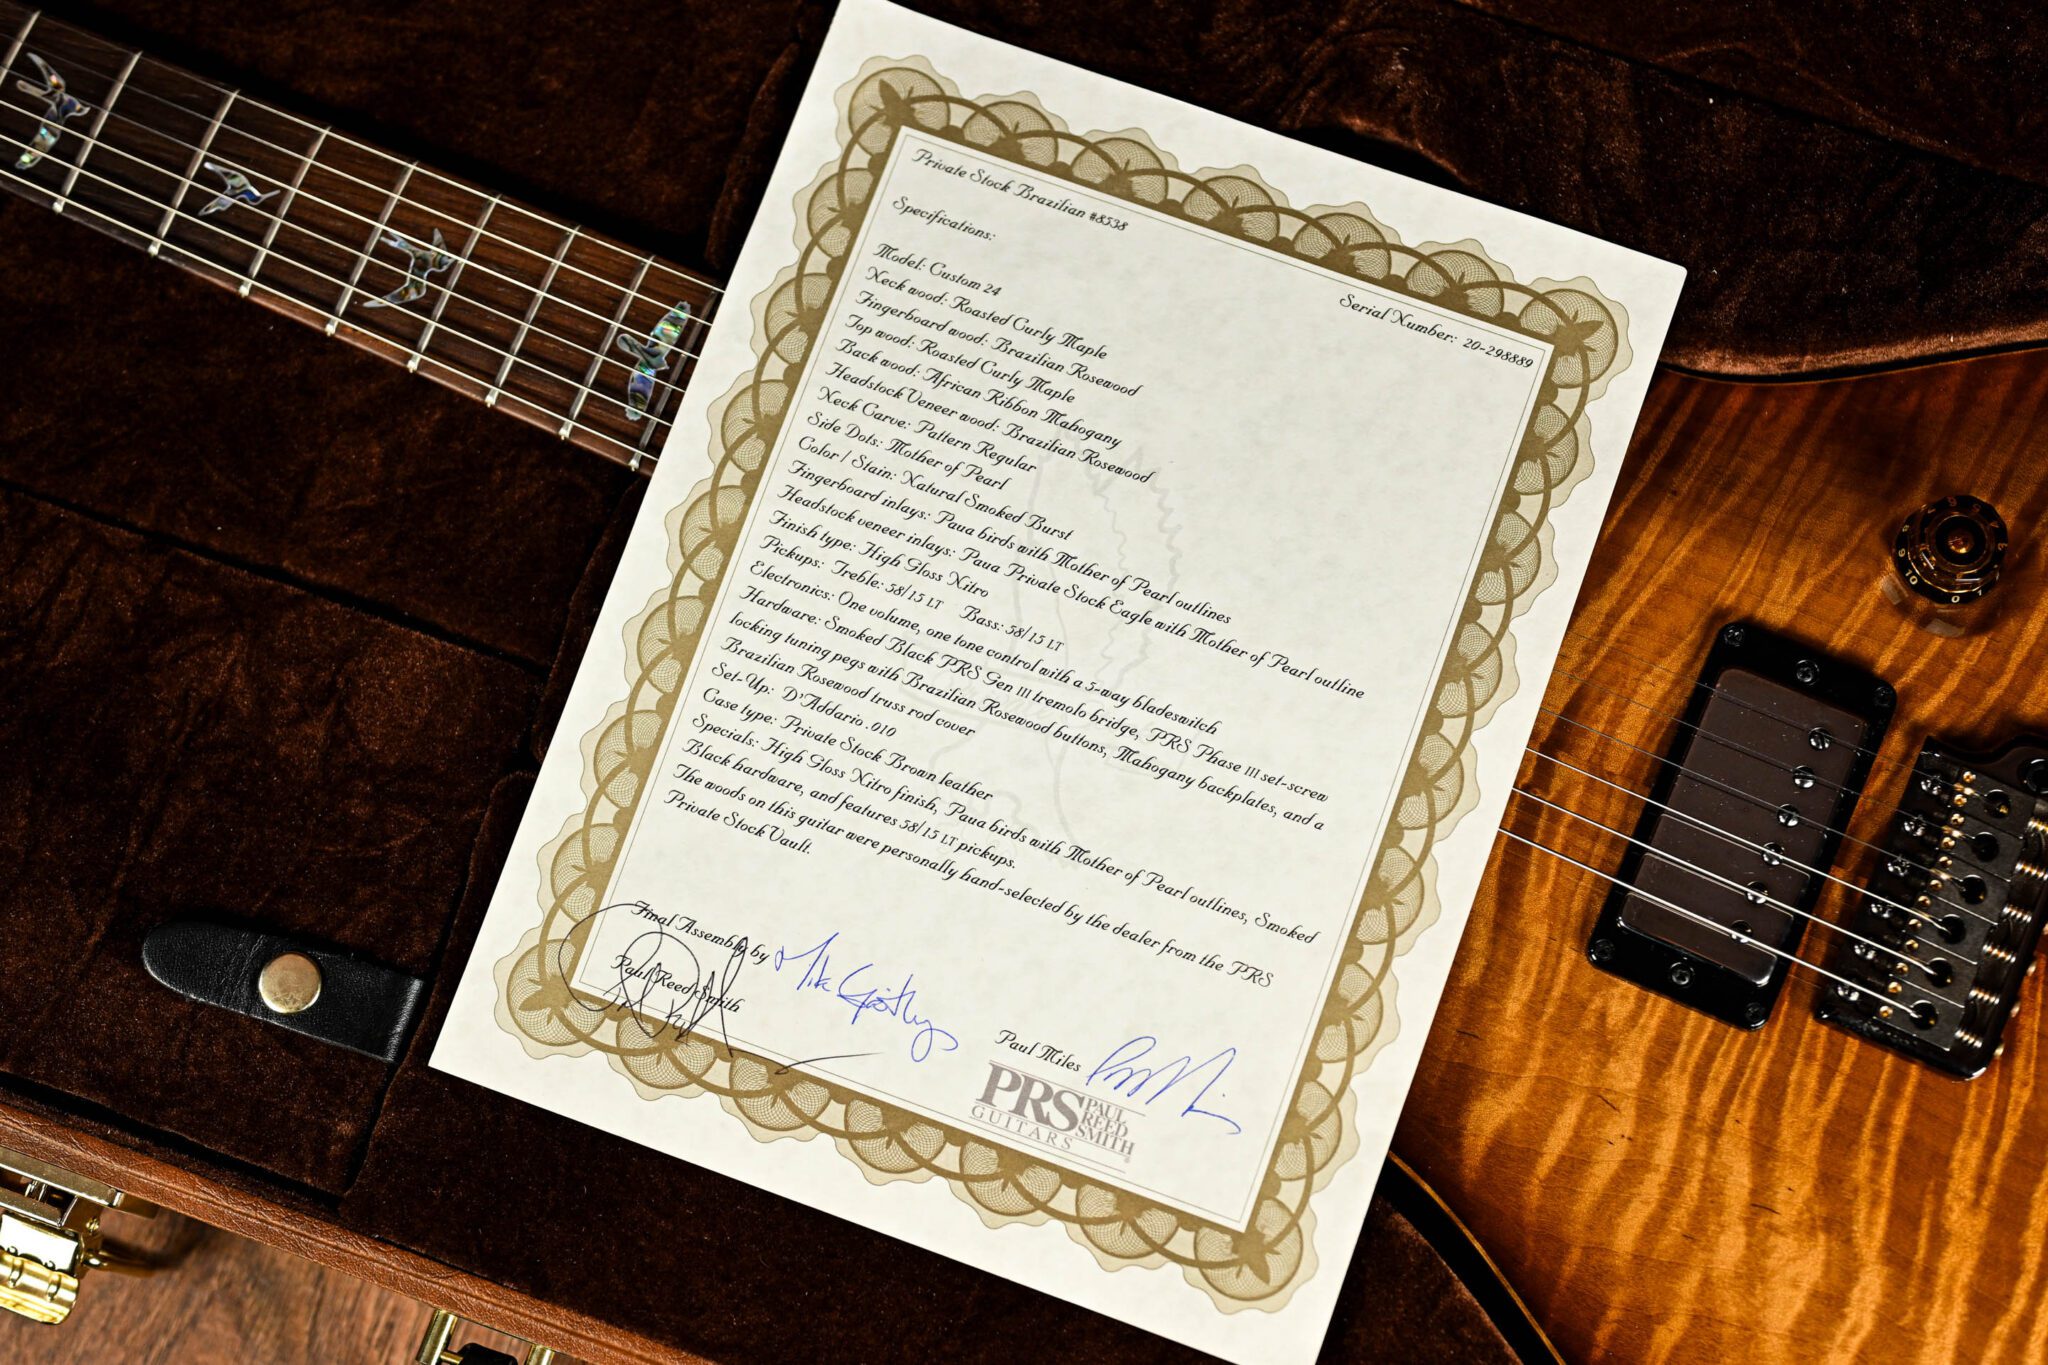 Private Stock Brazilian #8538
Serial Number: 20-298889
Specifications:
Model: Custom 24
Neck wood: Roasted Curly Maple
Fingerboard wood: Brazilian Rosewood
Top wood: Roasted Curly Maple
Back wood: African Ribbon Mahogany
Headstock Veneer wood: Brazilian Rosewood
Neck Carve: Pattern Regular
Side Dots: Mother of Pearl
Color / Stain: Natural Smoked Burst
Fingerboard inlays: Paua birds with Mother of Pearl outlines
Headstock veneer inlays: Paua Private Stock Eagle with Mother of Pearl outline
Finish type: High Gloss Nitro
Pickups: Treble: 58/15 LT Bass: 58/15 LT
Electronics: One volume, one tone control with a 5-way bladeswitch
Hardware: Smoked Black PRS Gen III tremolo bridge, PRS Phase III set-screw
locking tuning pegs with Brazilian Rosewood buttons, Mahogany backplates, and a
Brazilian Rosewood truss rod cover
Set-Up: D'Addario .010
Case type: Private Stock Brown leather
Specials: High Gloss Nitro finish, Paua birds with Mother of Pearl outlines, Smoked
Black hardware, and features 58/15 LT pickups.
The woods on this guitar were personally hand-selected by the dealer from the PRS
Private Stock Vault.
Final Assembly by
Paul Reed Smith
Paul Miles
PRS PAUL REED SMITH
GUITARS